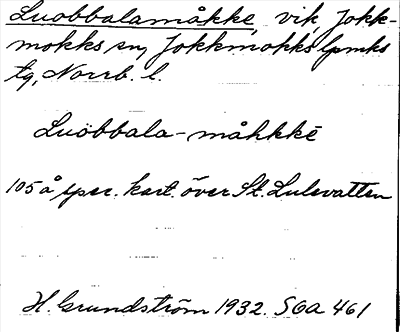 Luobbalamåkke, vik, Jokk-
mokks sn, Jokkmokks lpmks
tg, Norrb. l.
Luobbala-måhkkē
105 å spec. kart. över St. Lulevatten
H. Grundström 1932. SOA 461